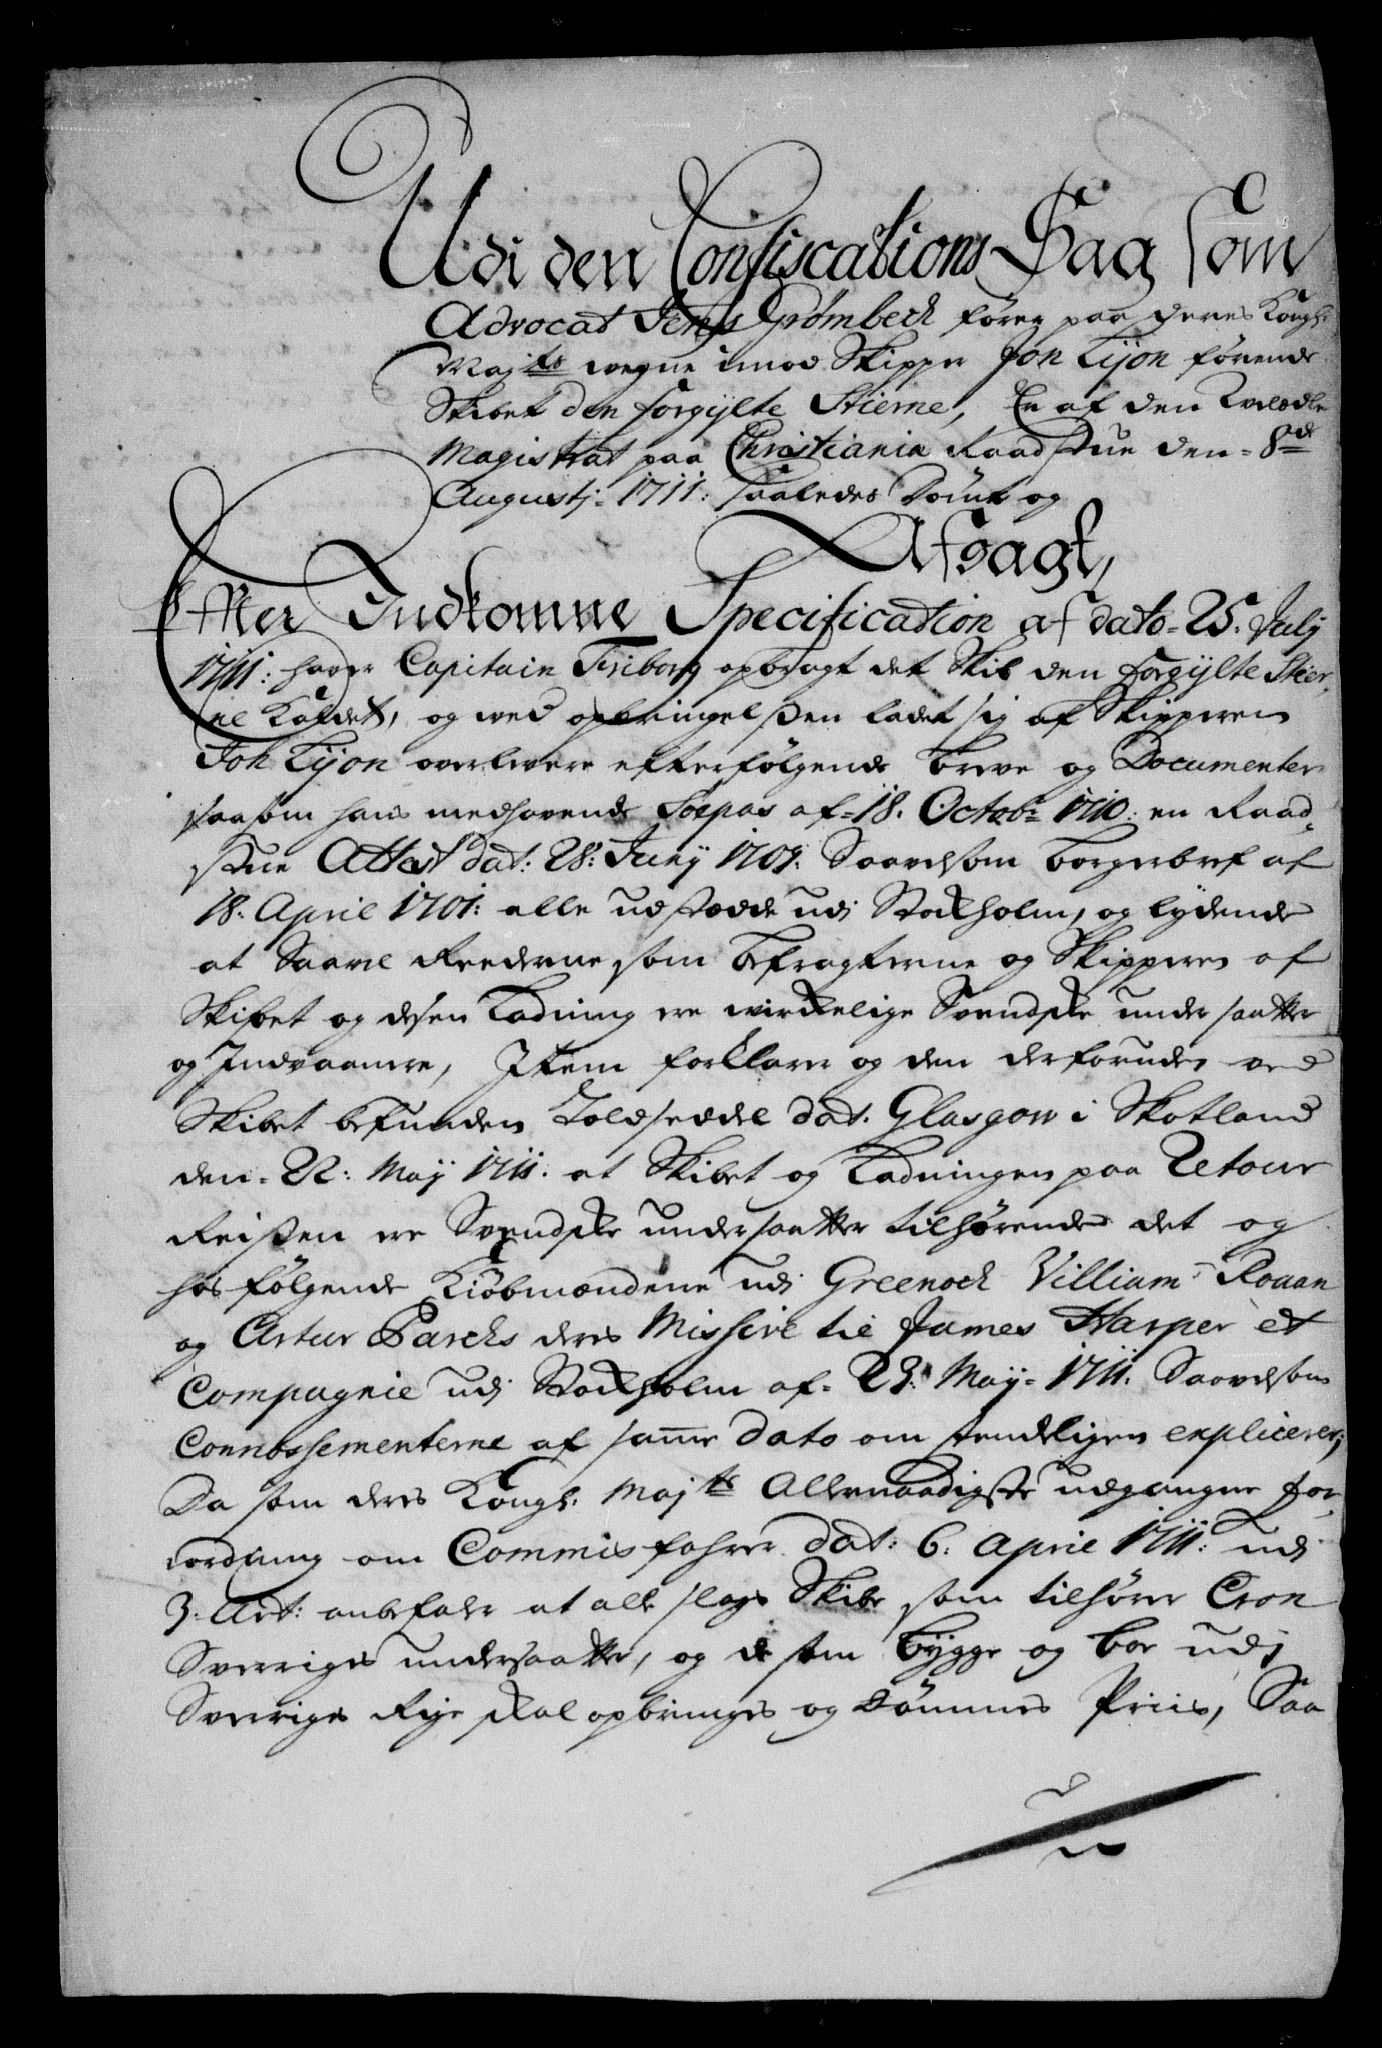 Udi den Confiscations Sag som
Advocat Jens Grømbech fører paa deres Kongl:
Maj:ts wegne imod Skipper Jon Lyon førende
Skibet den forgylte Stierne, Er af den Velædle
Magistrat paa Christiania Raadstue den 8de
Augustj 1711: saaledes Dømt og
Afsagt,
Effter Indkomne Specification af dato 25. July
1711: hafver Capitain Friborg opbragt det Skib den forgylte Stier,
ne Kaldet, og wed opbringelsen ladet sig af Skipperen
Joh Lyon overlevere efterfølgende breve og Documenter
saasom hans medhavende Søepas af 18. Octob: 1710: en Raad,
stue Attest dat: 28: Junij 1701: Saavelsom borgerbref af
18. April 1701: alle udstædde udi Stockholm, og lydende
at Saavel Reederne som Befragterne og Skipperen af
Skibet og desen Ladning ere wirckelige Svendske undersaatter
og Indvaanere, Item forklarer og den derforuden ved
Skibet befunden Toldseddel dat. Glasgow i Skotland
den 22: Maij 1711: at Skibet og Ladningen paa Retour
Reisen ere Svendske undersaatter tilhørende det og
hos følgende Kiøbmændene udi Greenoch Villiam Rouan
og Artur Parchs deres Missive til James Harper et
Compagnie udi Stockholm af 23: Maij 1711. Saavelsom
Connossementerne af samme Dato omstendeligen explicerer;
Da som deres Kongl: Maj:ts Allernaadigste udgangne for,
ordning om Commisfahrer dat: 6. April 1711: udi
3: Art: anbefaler at alle slags Skibe som tilhører Cron
Sverriges undersaatter, og de som bygge og boe udj
Sverriges Rige skal opbringes og Dømmes Priis, Saa